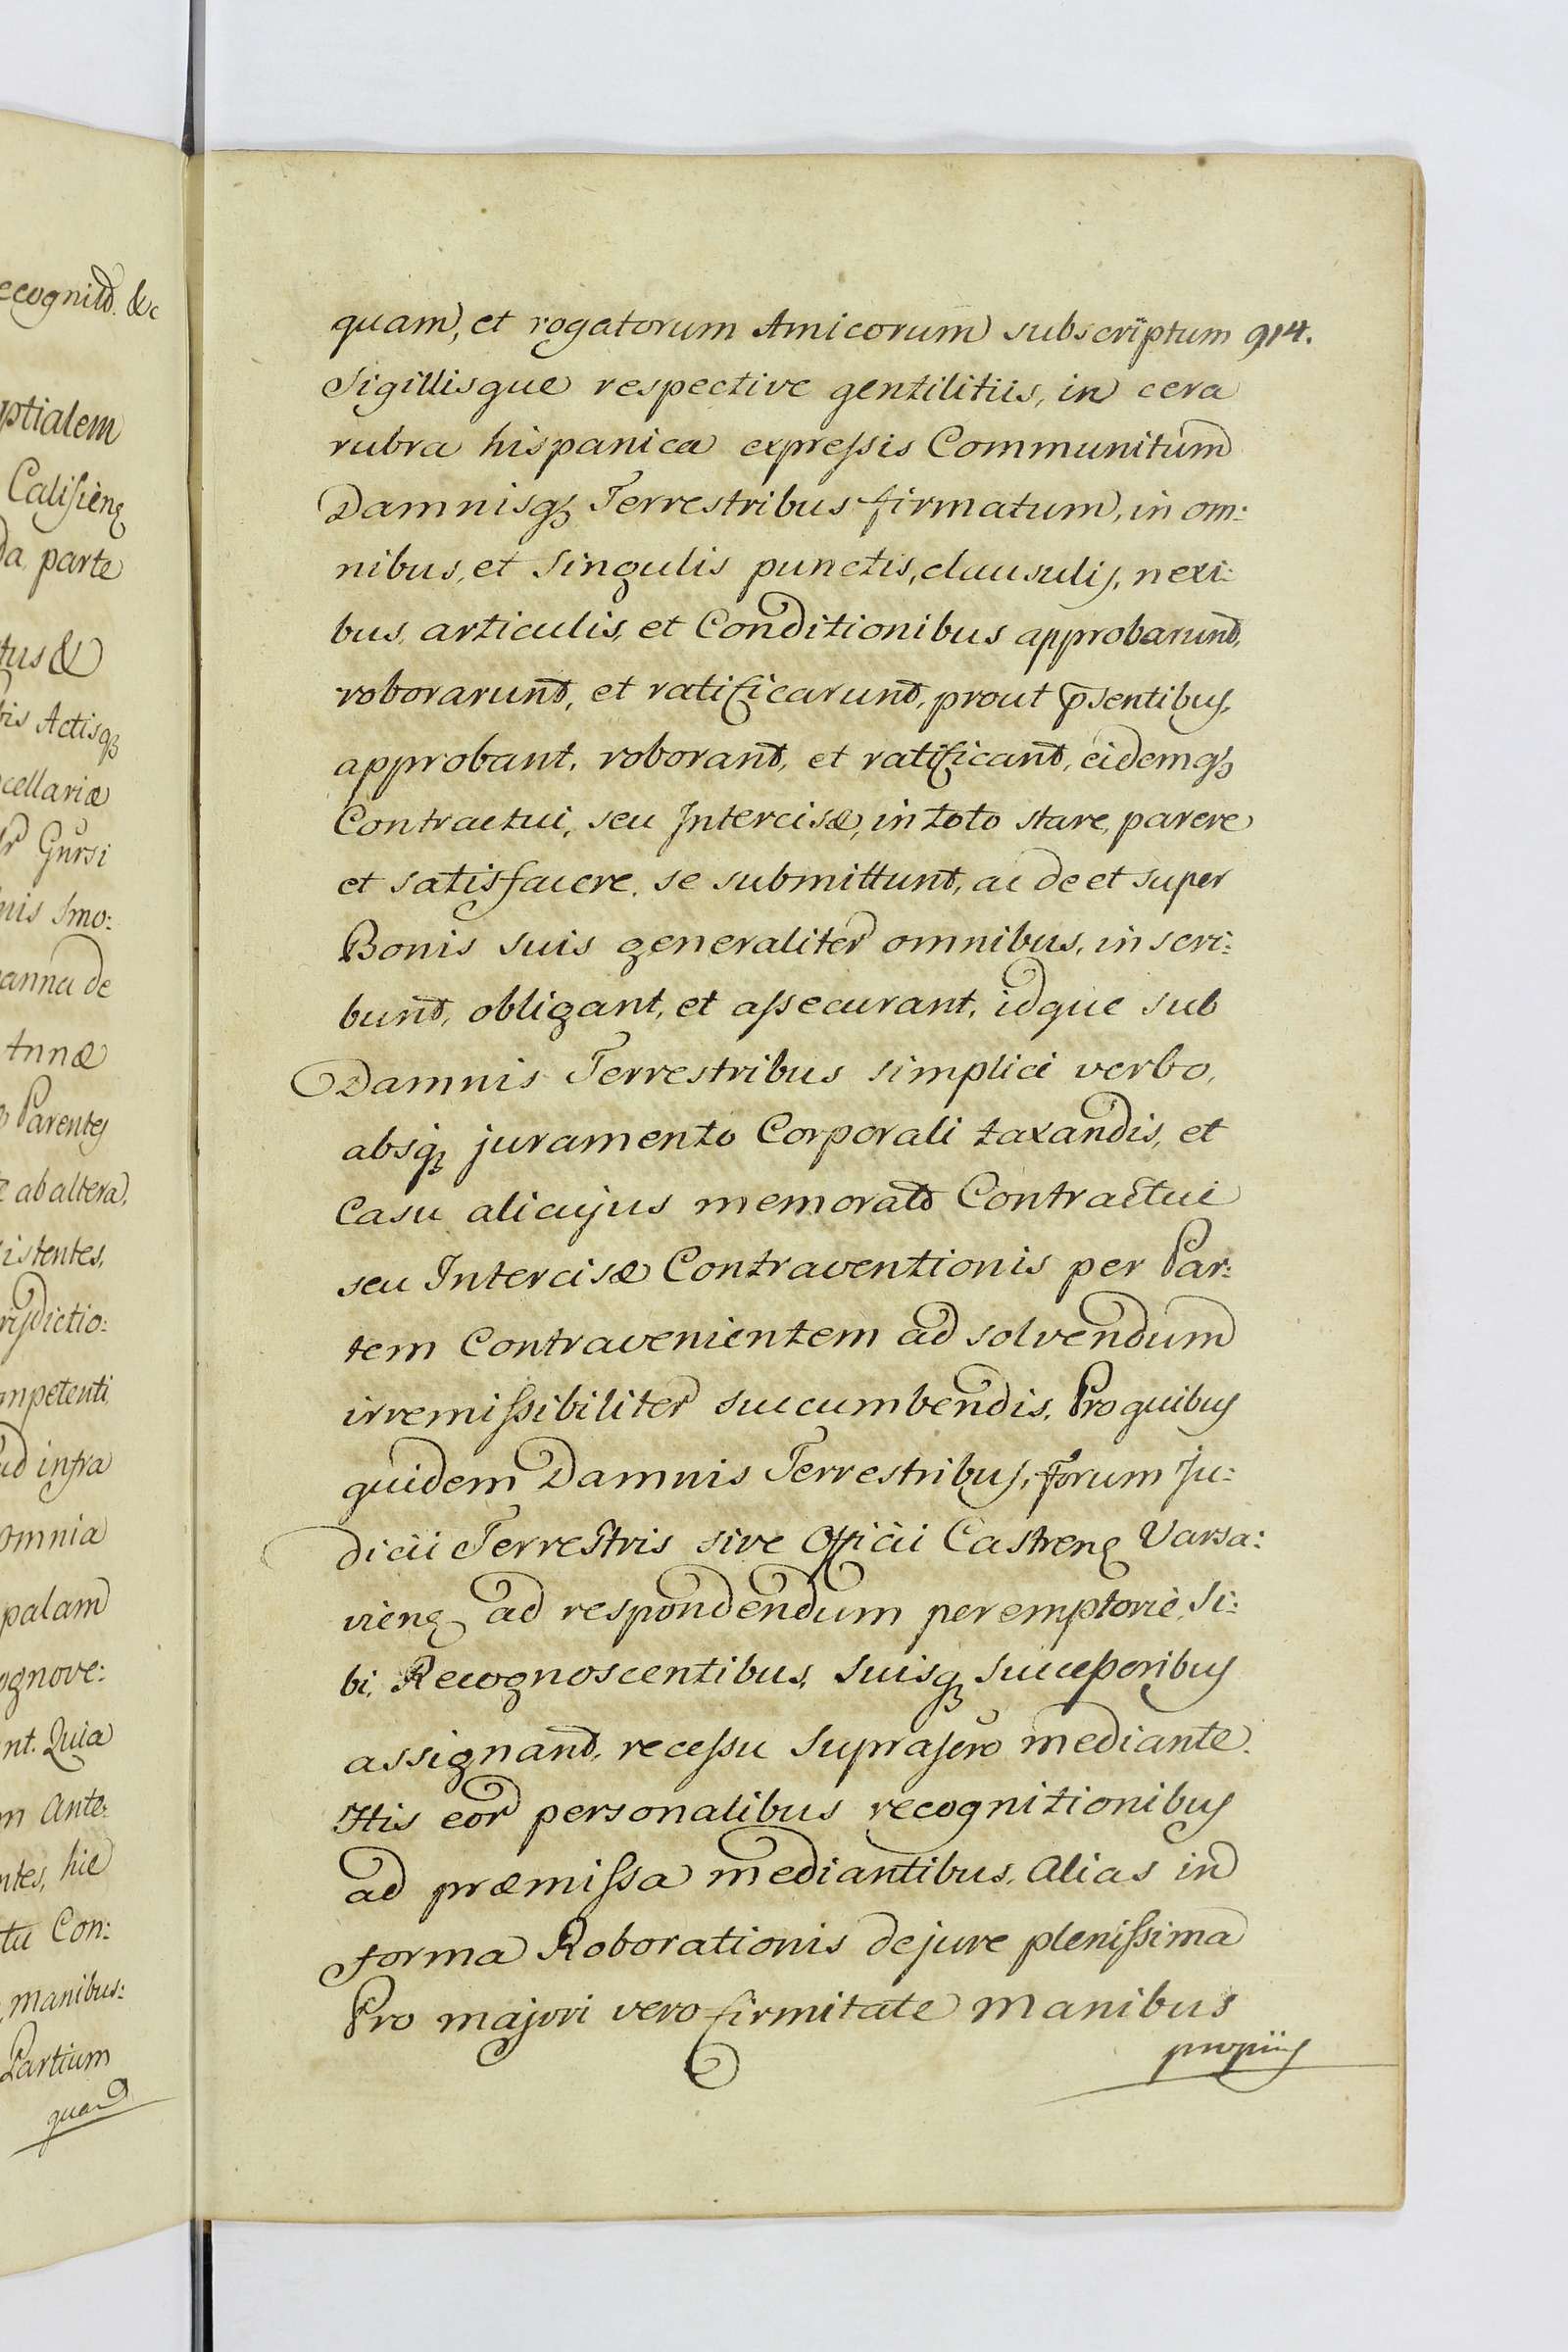 ecognit. &c
ptialem
Calisieng
da parte
tus &
bis Actisq3
cellariæ
Gursi
nis Smo:
anna de
Annæ
Parentes
ab altera,
istentes,
risdictio:
mpetenti,
ad infra
omnia
palam
ognove:
nt. Quia
m Ante:
ntes, hic
tu Con:
manibus:
Partium
quam
quam, et rogatorum Amicorum subscriptum 914.
Sigillisque respective gentilitiis, in cera
rubra hispanica expressis Communitum
Damnisq3 Terrestribus firmatum, in om:
nibus, et singulis punctis, clausulis, nexi:
bus, articulis, et Conditionibus approbarunt,
roborarunt, et ratificarunt, prout p̄sentibus,
approbant, roborant, et ratificant, eidemq3
Contractui, seu Intercisæ, in toto stare, parere
et satisfacere, se submittunt, ac de et super
Bonis suis generaliter omnibus, inscri:
bunt, obligant, et assecurant, idque sub
Damnis Terrestribus simplici verbo,
absq3 juramento Corporali taxandis, et
Casu alicujus memorato Contractui
seu Intercisæ Contraventionis per Par:
tem Contravenientem ad solvendum
irremissibiliter succumbendis. Pro quibus
quidem Damnis Terrestribus, forum Ju:
dicii Terrestris sive Officii Castreng Varsa:
vieng ad respondendum peremptoriè, Si:
bi, Recognoscentibus, suisq3 successoribus
assignant, recessu suprasero mediante.
His eor personalibus recognitionibus
ad præmissa mediantibus. Alias in
forma Roborationis de jure plenissima
Pro majori vero firmitate manibus
propiis